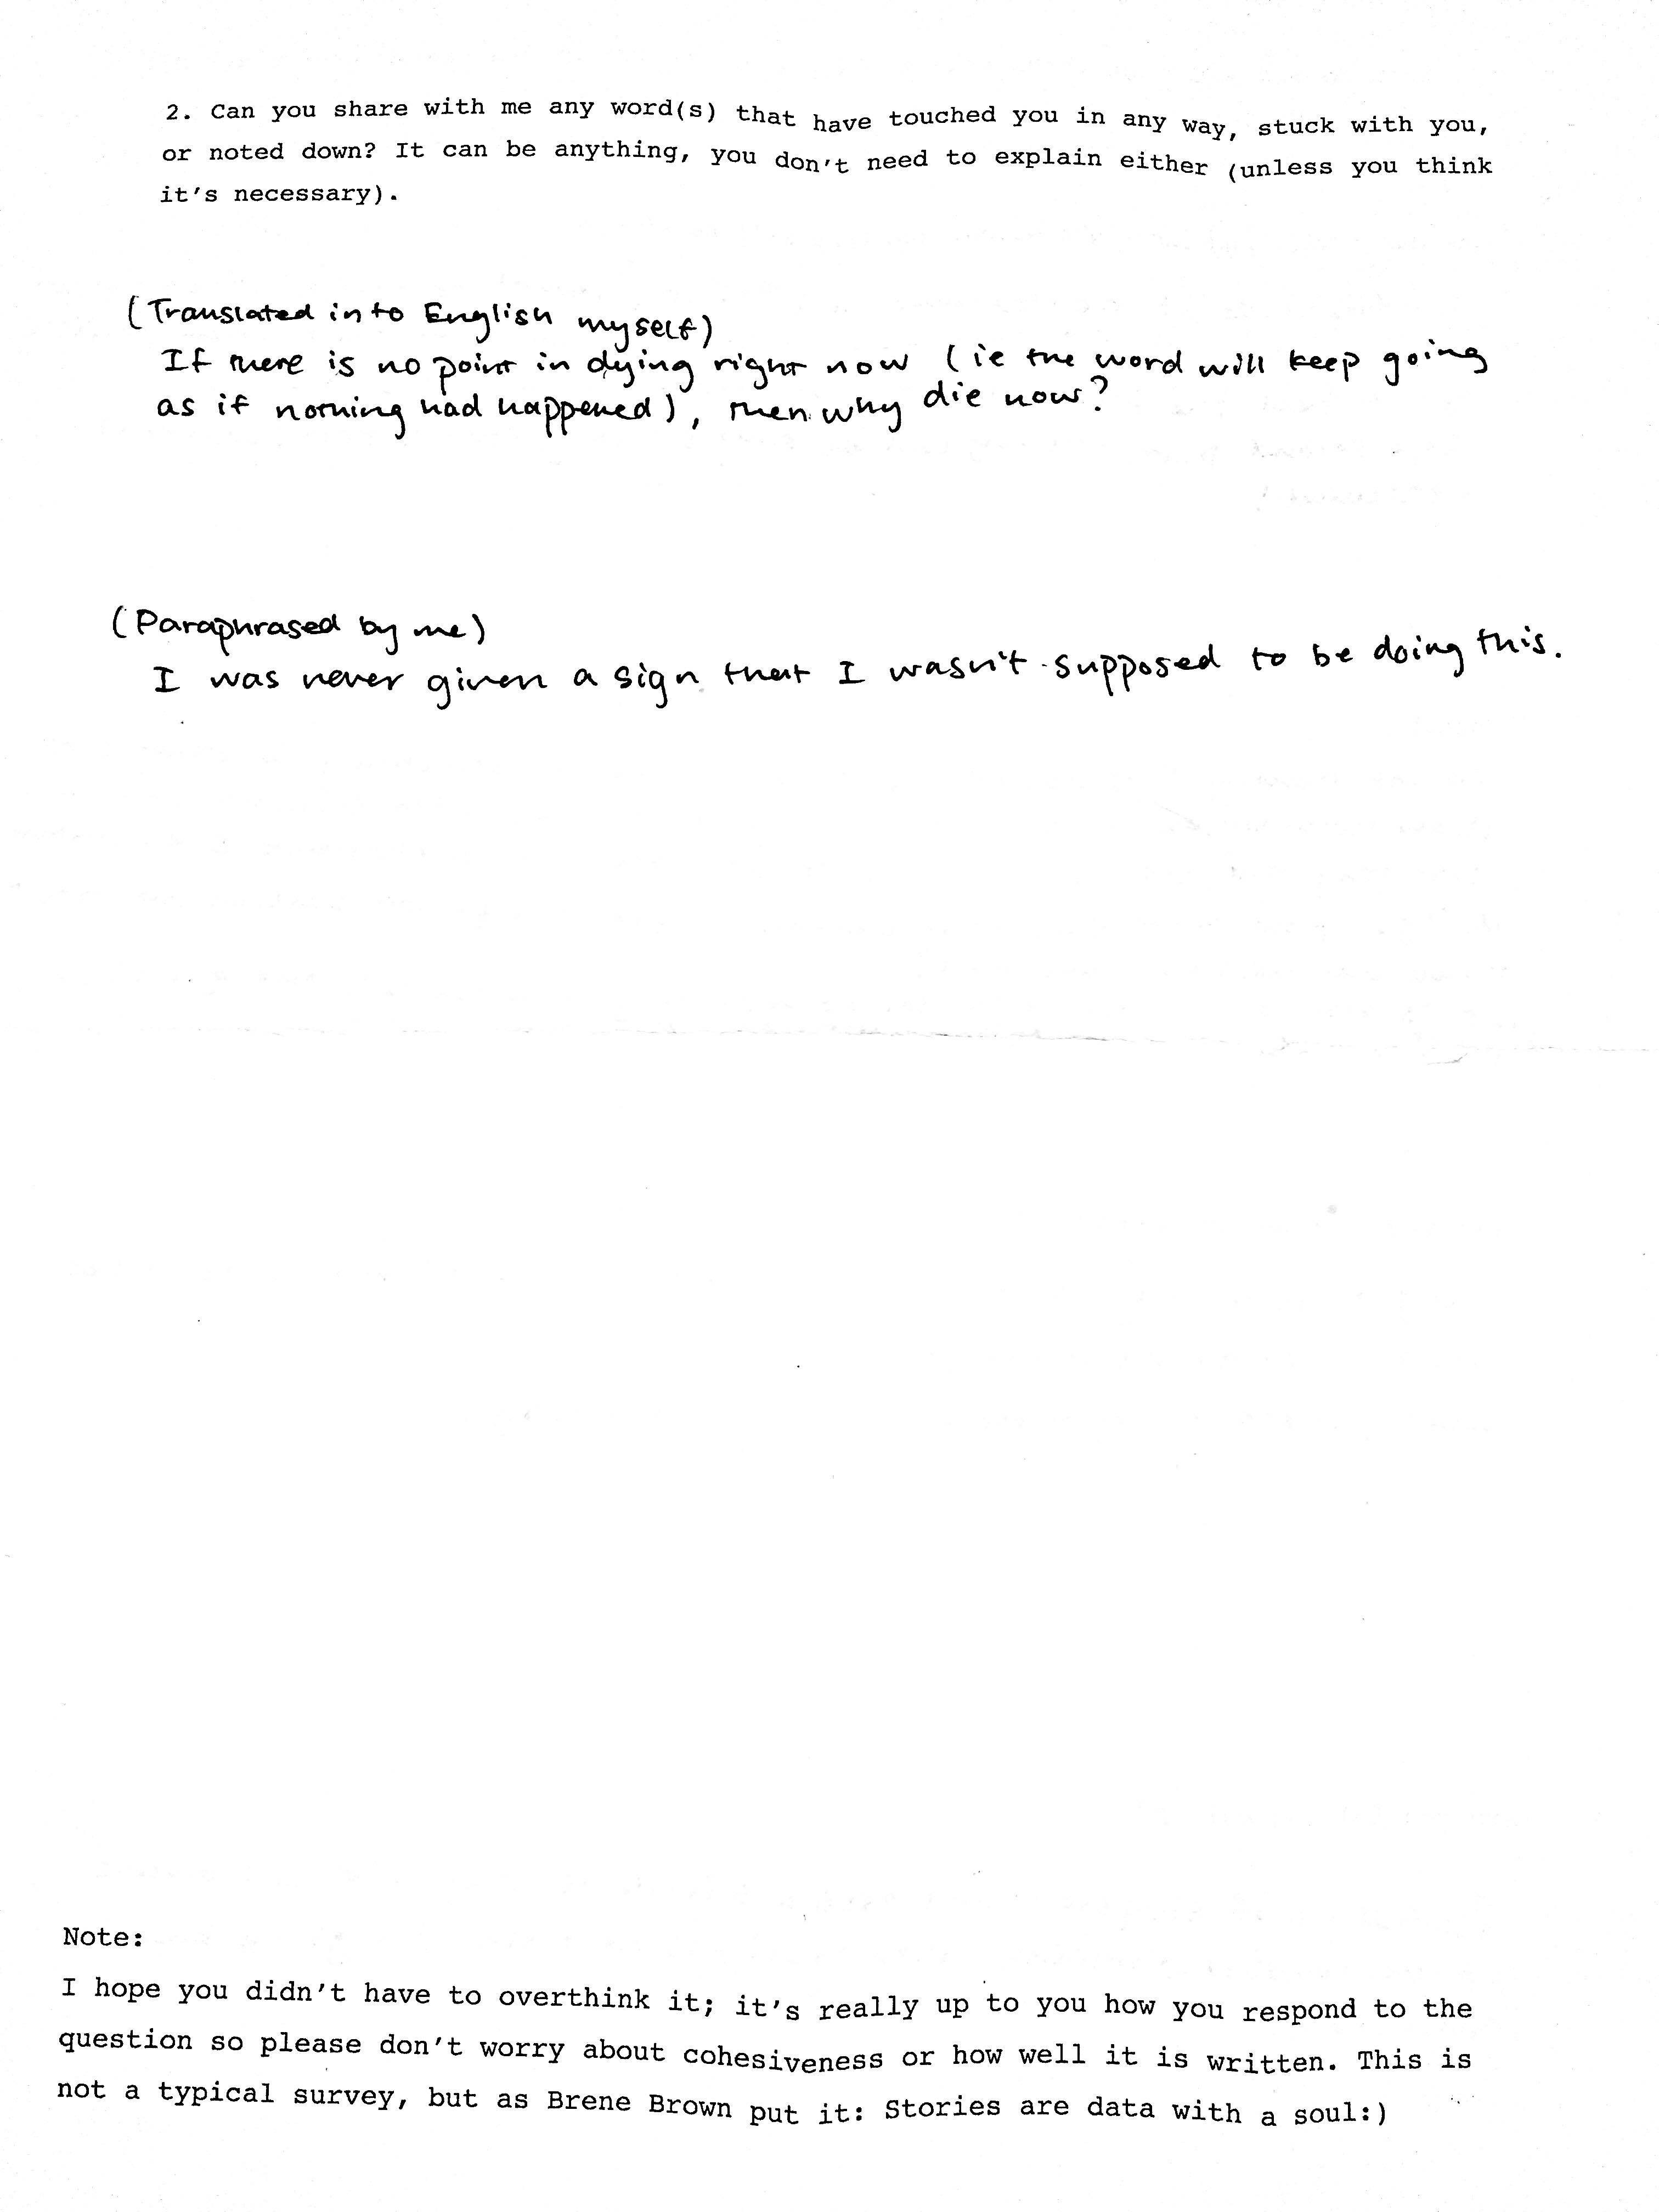 2. Can you share with me any word(s) that have touched you in any way, stuck with you,
or noted down? It can be anything, you don't need to explain either (unless you think
it's necessary).
(Translated into English myself)
If there is no point in dying right now (ie the word will keep going
as if nothing had happened), then why die now?
(Paraphrased by me)
I was never given a sign that I wasn't supposed to be doing this.
Note:
I hope you didn't have to overthink it; it's really up to you how you respond to the
question so please don't worry about cohesiveness or how well it is written. This is
not a typical survey, but as Brene Brown put it: Stories are data with a soul:)